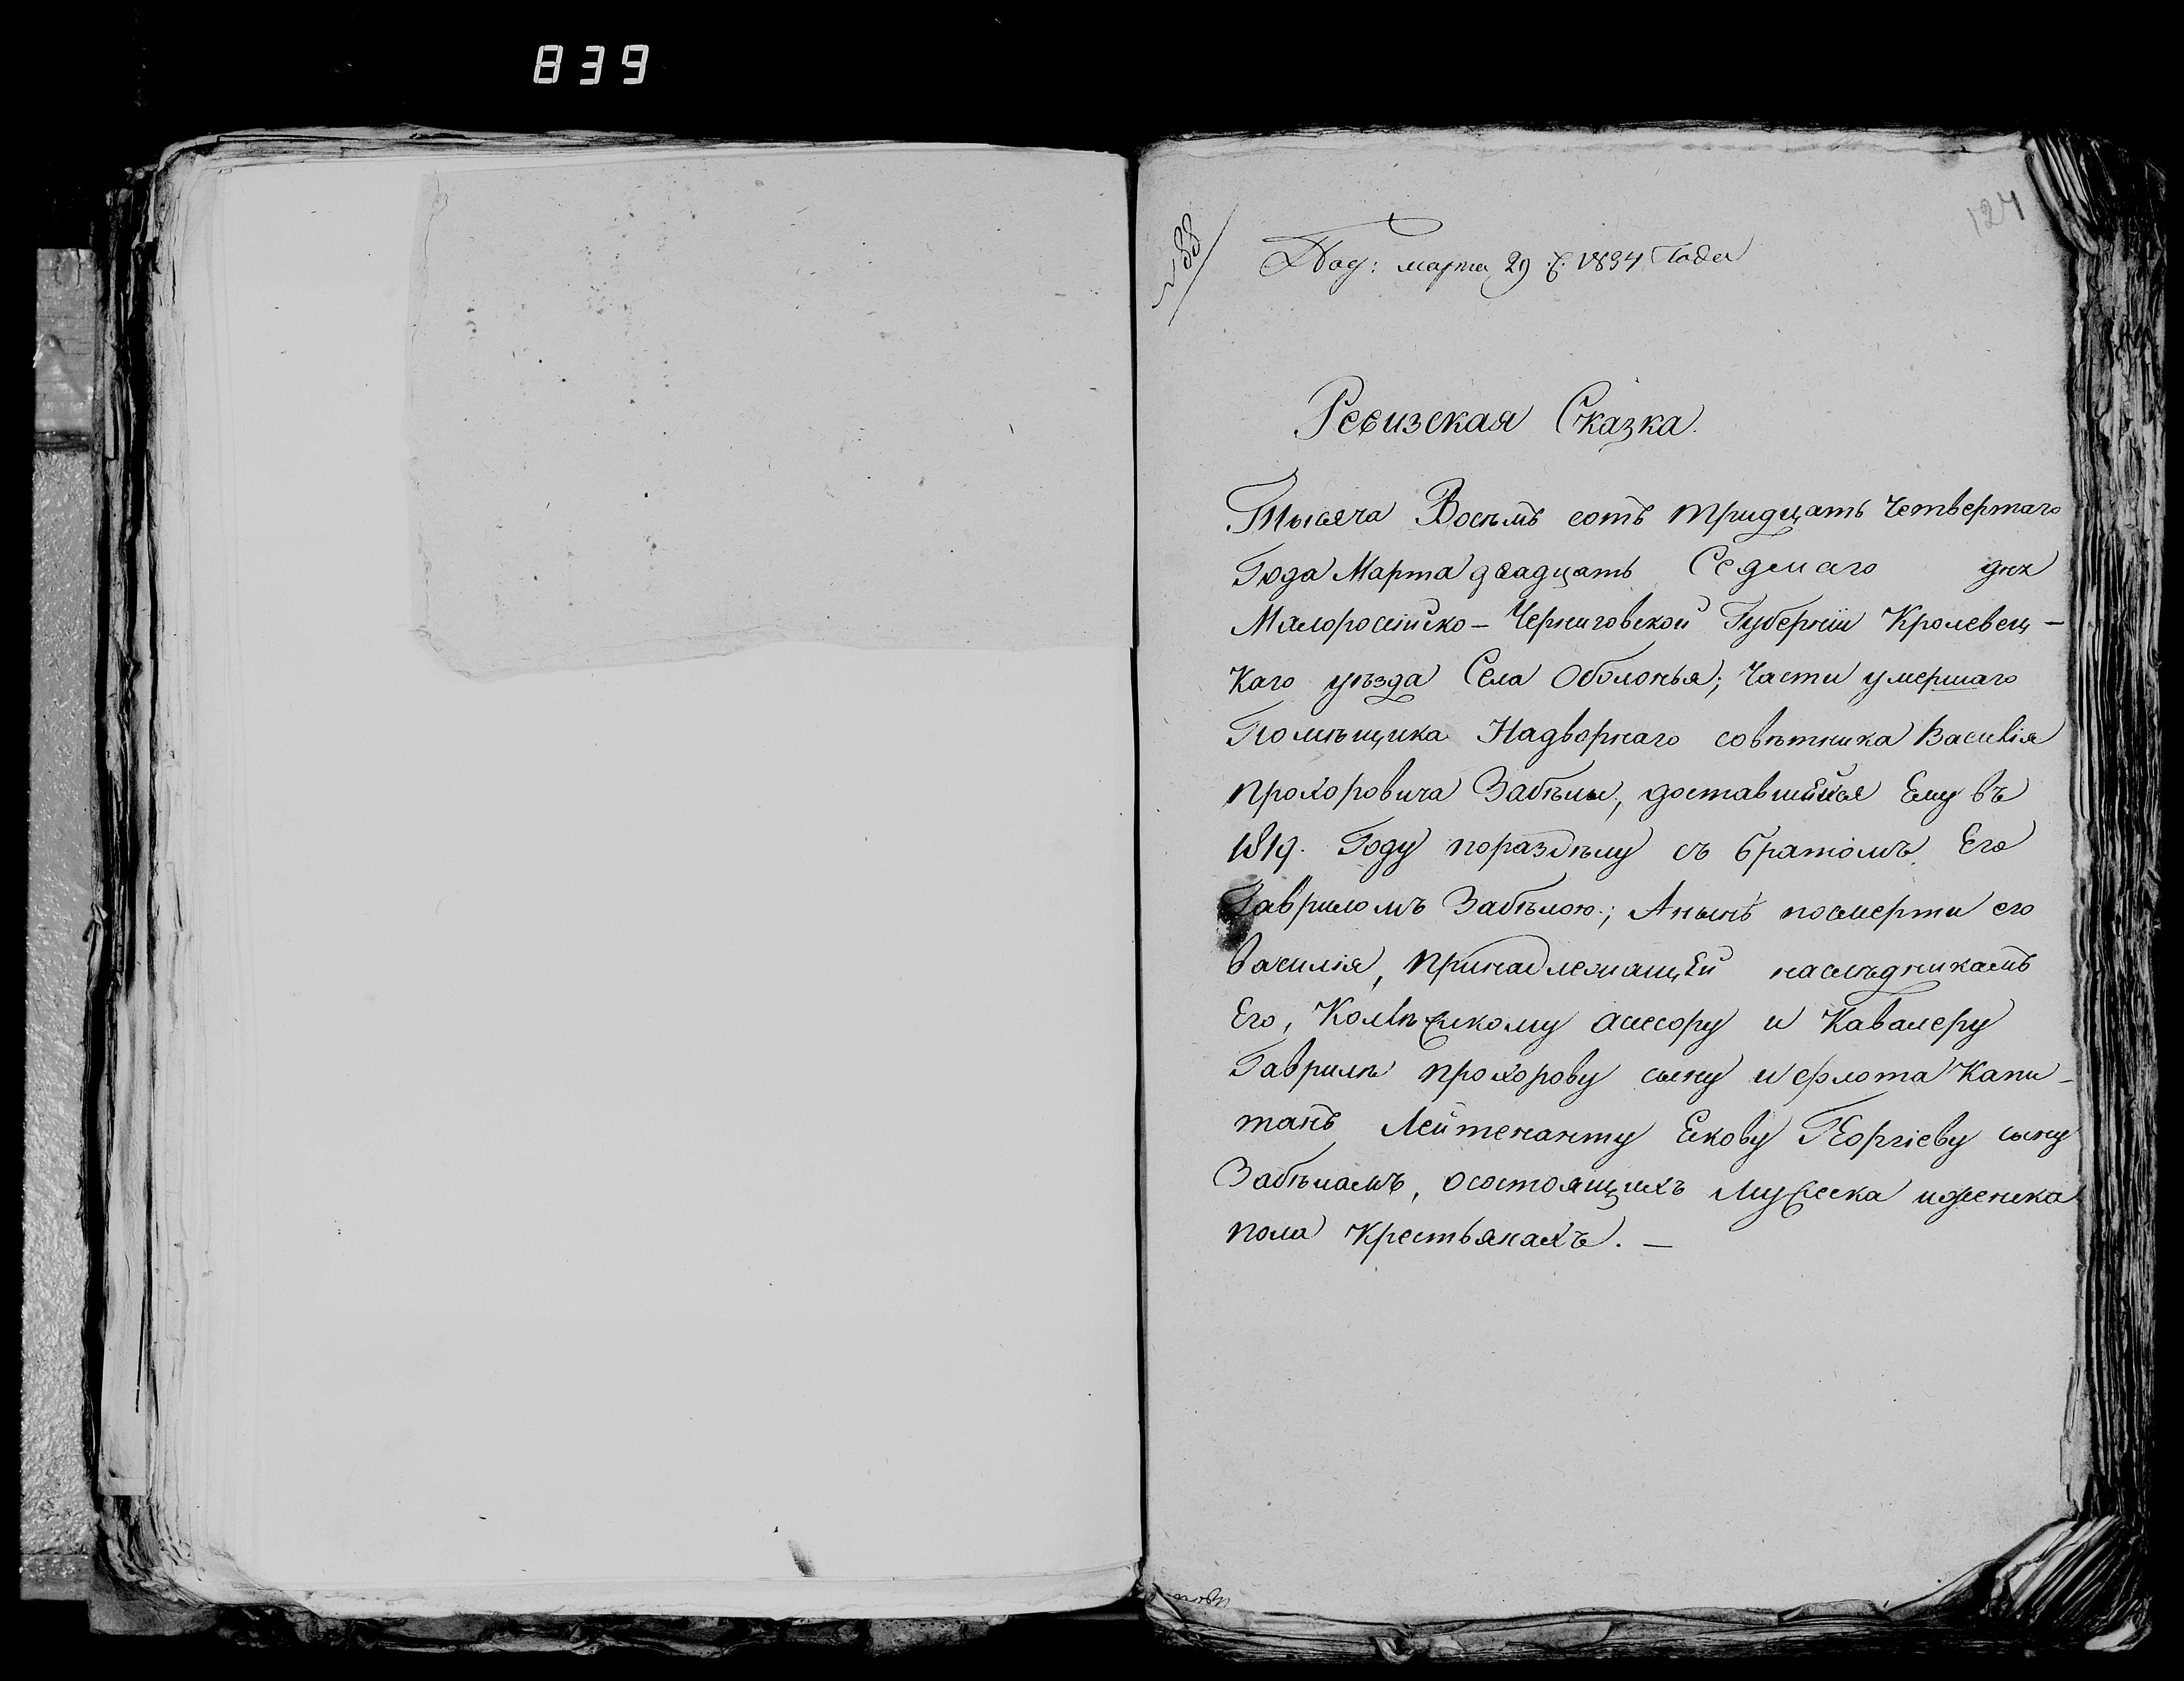 839
124
№ 88
Под: марта 29 д. 1834 Года
Ревизская Сказка.
Тысяча Восемъ сотъ тридцать Четвертаго
Года Марта двадцать Седмаго дня
Малоросійско - Черниговской Губерніи Кролевец-
каго уѣзда Села Оболонья; Части умершаго
Помѣщика Надворнаго совѣтника Василія
Прохоровича Забѣлы, доставшейся Ему въ
1819. Году поразделу съ братомъ Его
Гавриломъ Забѣлою; Анынѣ посмерти его
Василія, принадлежащей наслѣдникамъ
Его, Колѣжскому асесору и Кавалеру
Гаврилѣ прохорову сыну и флота Капи-
танъ Лейтенанту Екову Георгіеву сыну
Забѣламъ, осостоящихъ мужеска иженска
пола Крестьянахъ. —